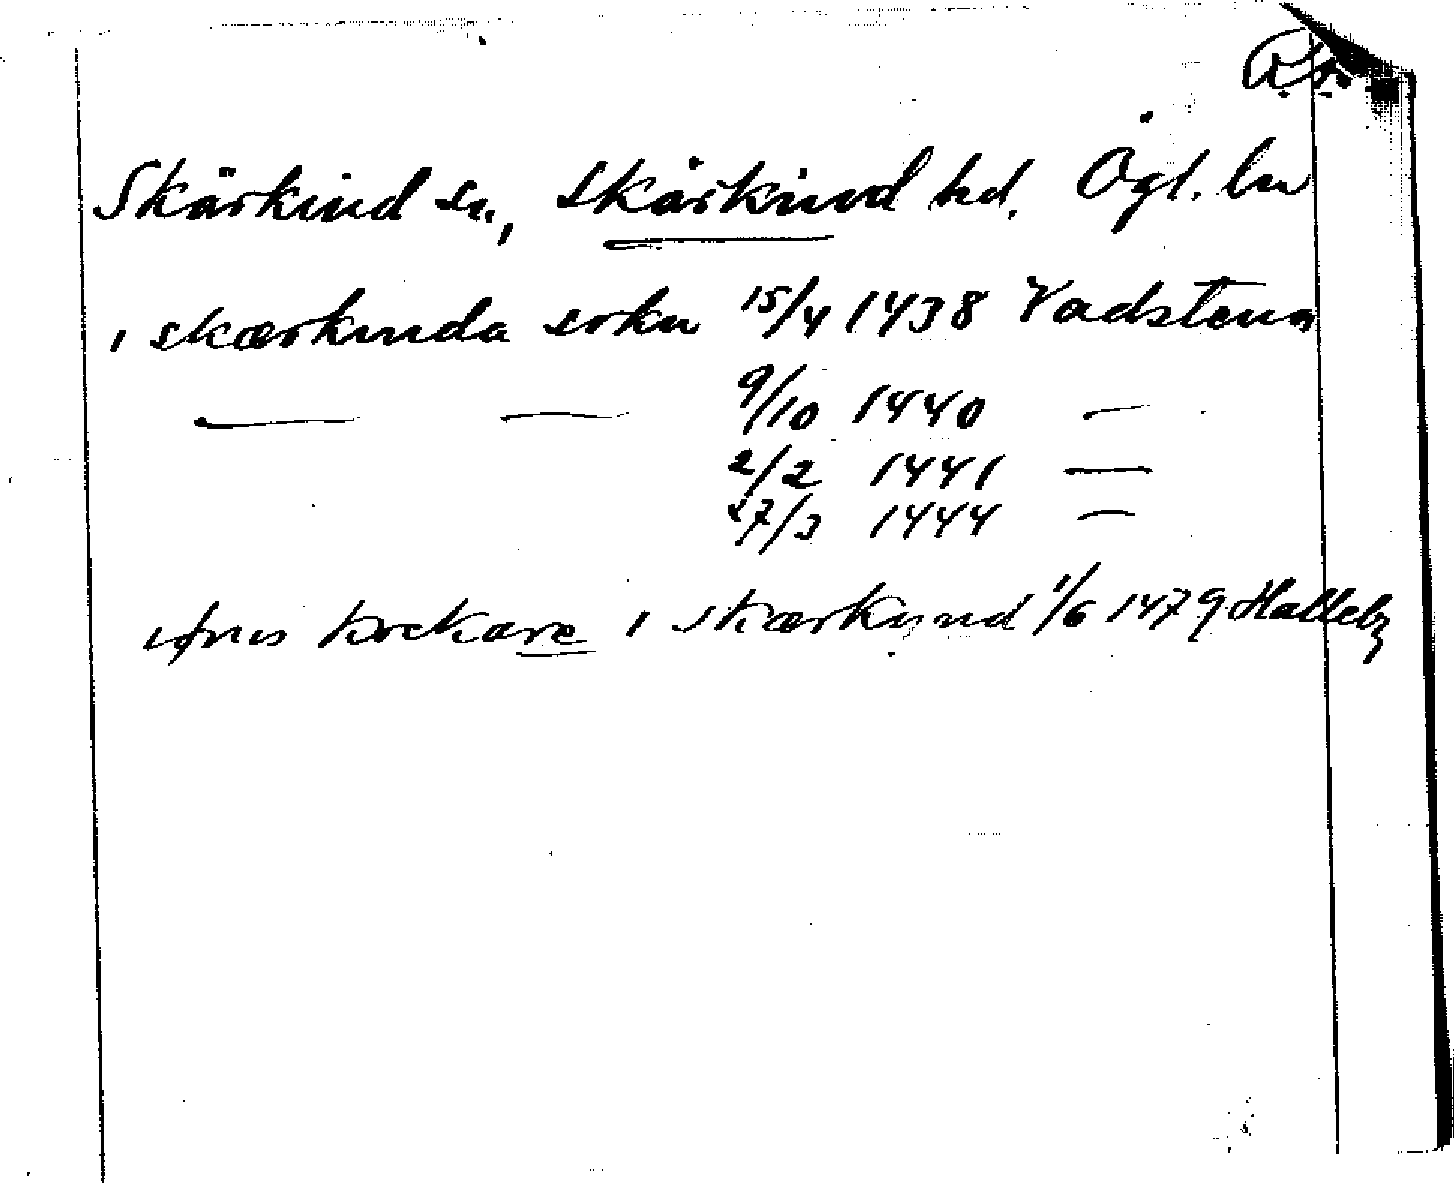 Skärkind sn, Skärkind hd. Ögl. län
i skærkinda sokn 15/4 1438 Vadstena
— — 9/10 1440 —
2/2 1441 —
27/3 1444 —
i skærkynd 1/6 1479 Halleby